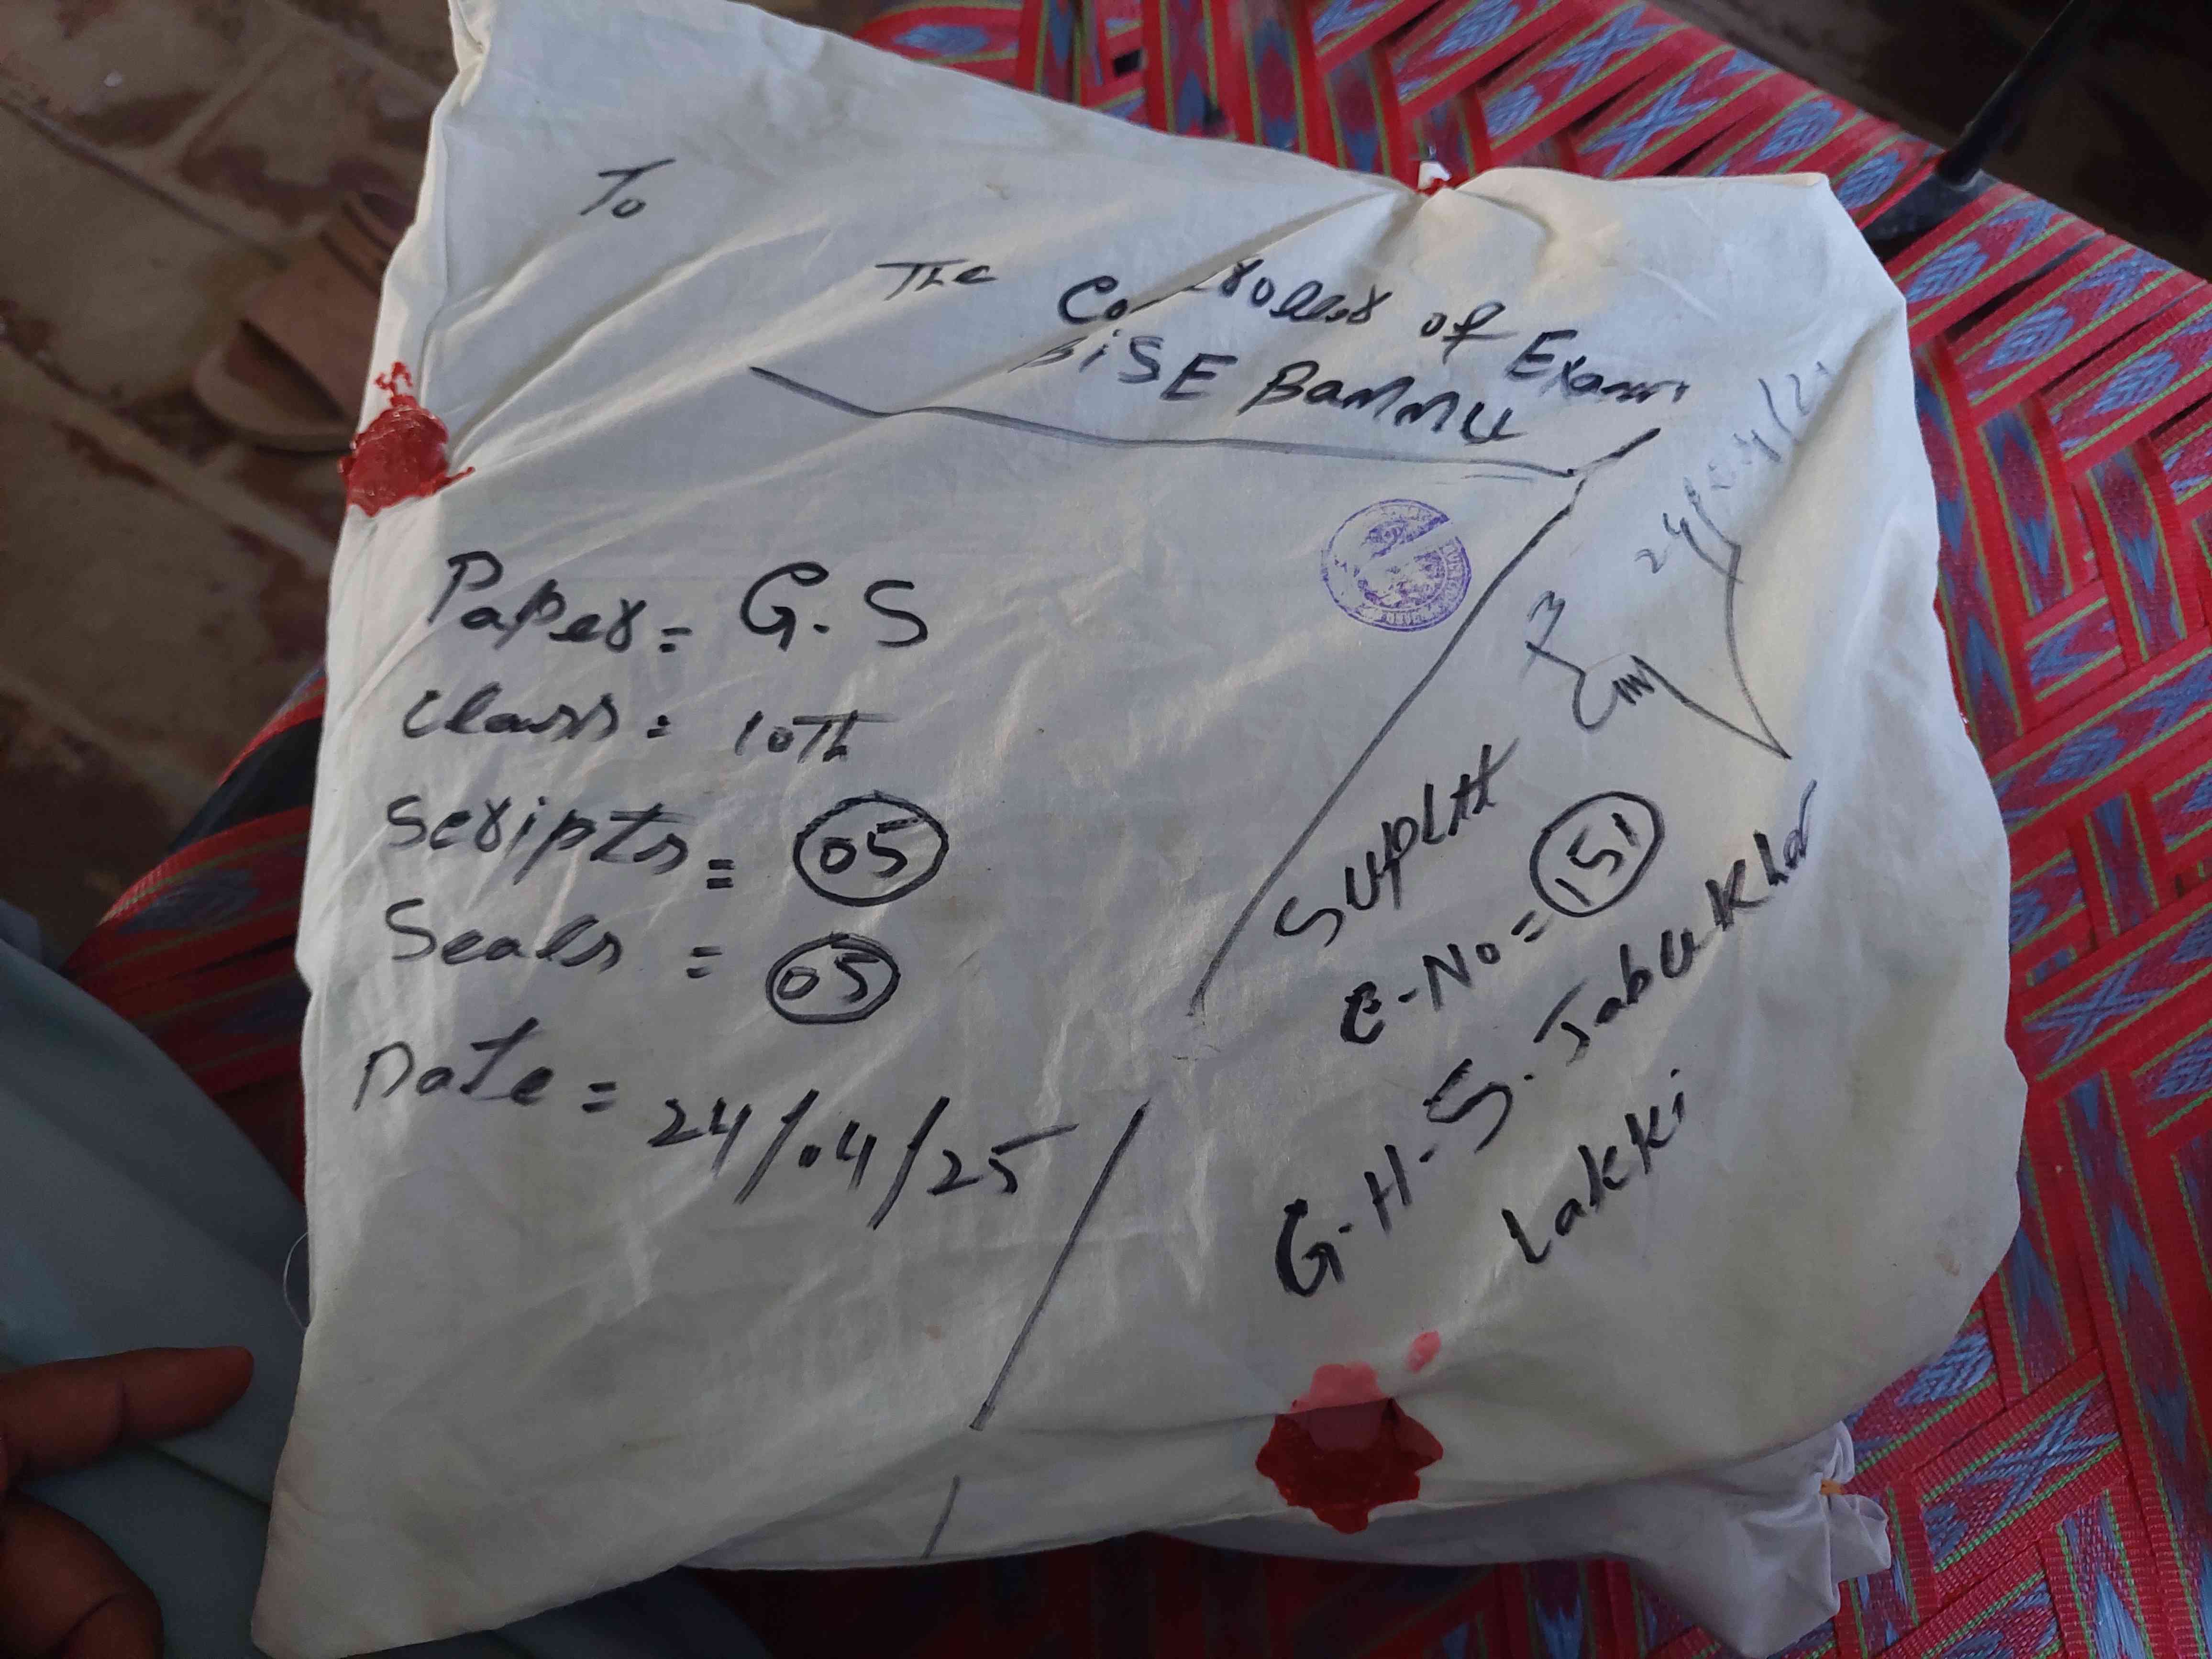 To
The Co roller of Exam
BiSE BaNNU
Paper = G.S
Class = 10Th
Scripts = 05
Seals = 05
Date = 24/04/25
24/04/2
Supdtt
C-No = 151
G-H-S. Jabukhel
Lakki